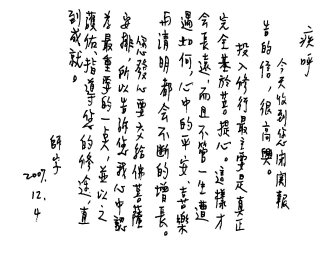 疾呼
今天收到您閉關報
告的信，很高興。
投入修行最主要是真正
完全基於菩提心。這樣才
會長遠，而且不管一生遭
遇如何，心中的平安、喜樂
和清明都會不斷的增長。
您發心要交給佛菩薩
安排，所以告訴您我心中認
為最重要的一点，並以之
護佑、指導您的修途，直
到成就。
師字
2007.
12.
4